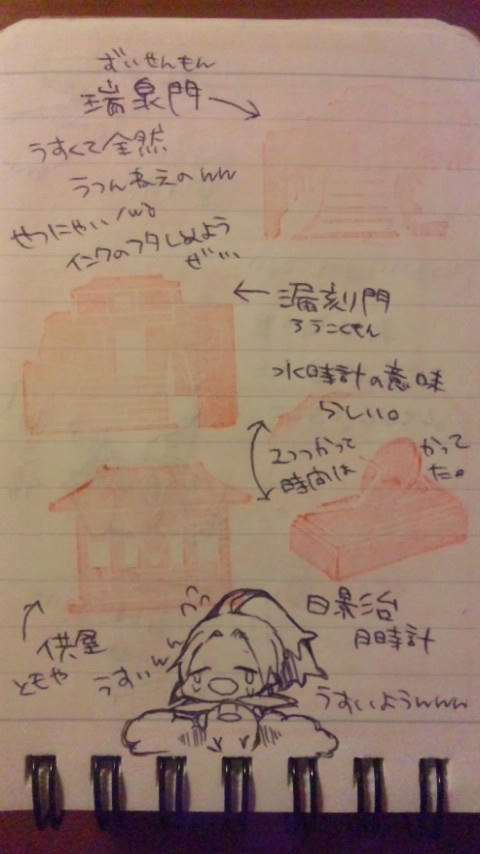 ずいせんもん
瑞泉門
うすくて全然
うつんねえのww
せつにゃい
インクのフタしめよう
ぜい
漏刻門
ろうこくもん
水時計の意味
らしい。
2つつかって
時間は
かって
た。
供屋
ともや
うすいww
日
時計
うすいようwww